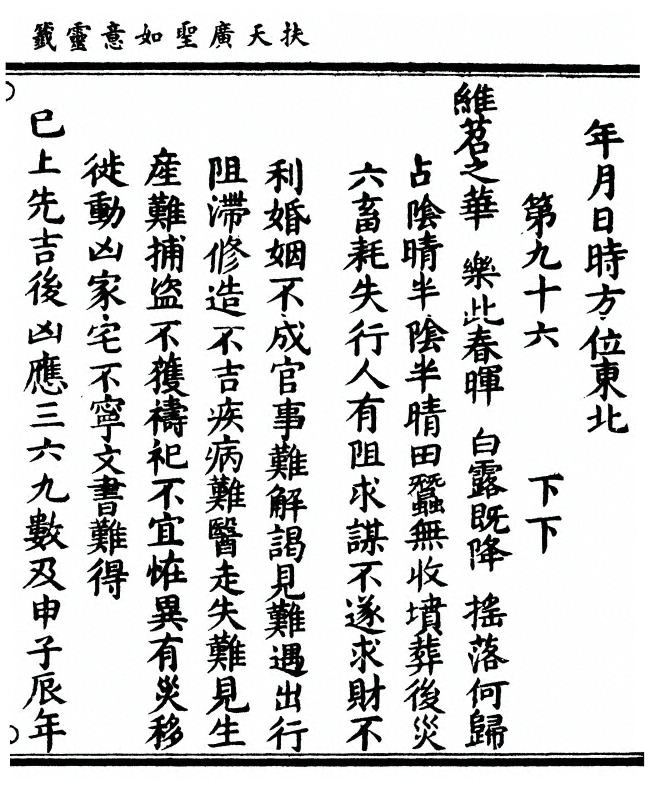 扶天廣聖如意靈籤
年月日時方位東北
第九十六 下下
維苕之華 樂此春暉 白露既降 搖落何歸
占陰晴半陰半晴田蠶無收墳葬後災
六畜耗失行人有阻求謀不遂求財不
利婚姻不成官事難解謁見難遇出行
阻滯修造不吉疾病難醫走失難見生
産難捕盜不獲禱祀不宜恠異有災移
徙動凶家宅不寧文書難得
已上先吉後凶應三六九數及申子辰年